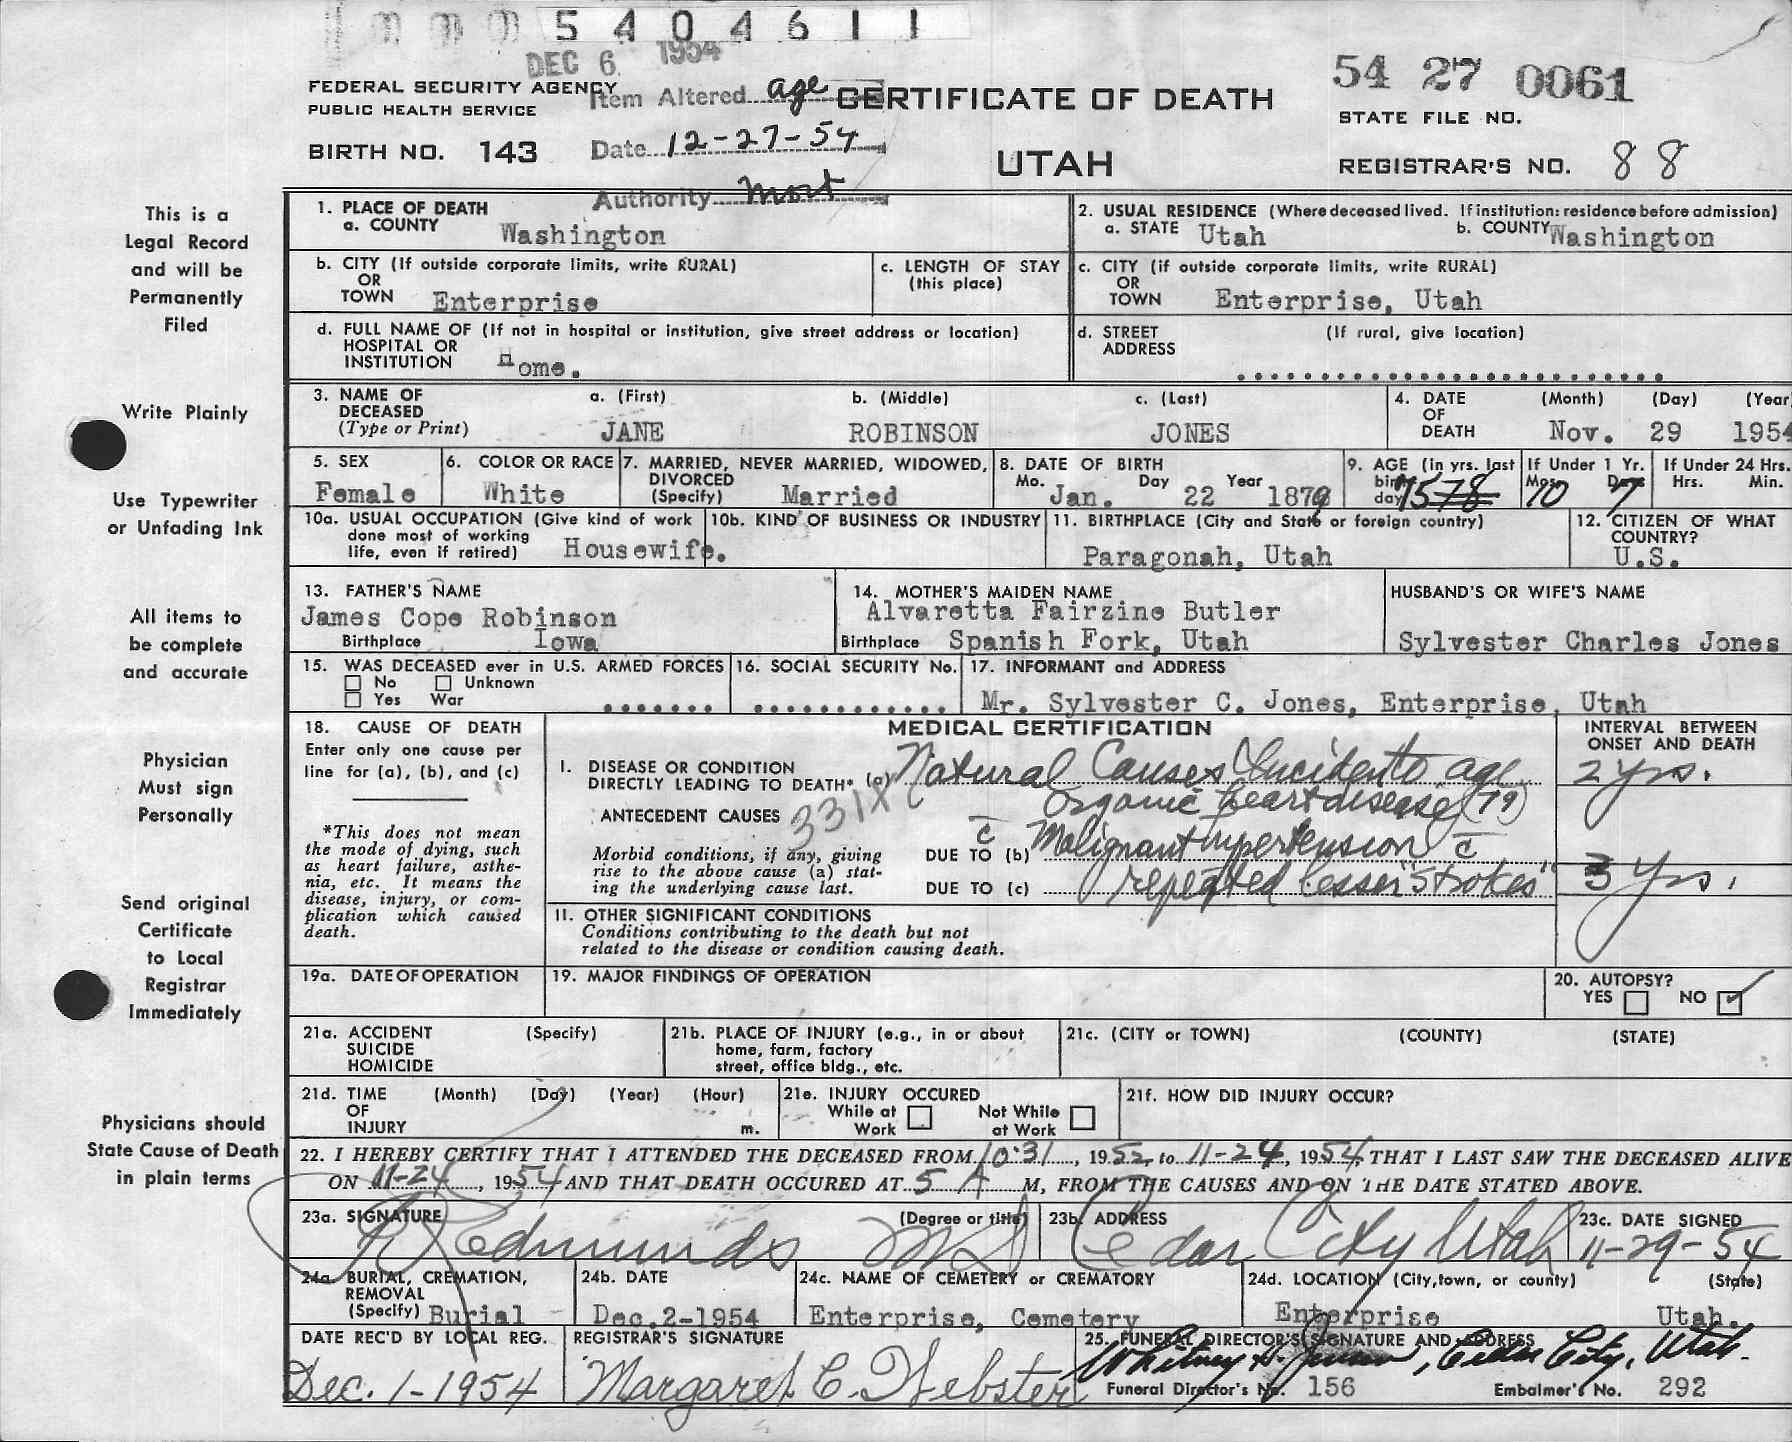 5 4 0 4 6 1 1
DEC 6 1954
54 27 0061
FEDERAL SECURITY AGENCY
PUBLIC HEALTH SERVICE
Item Altered age
CERTIFICATE OF DEATH
STATE FILE NO.
BIRTH NO. 143
Date 12-27-54
UTAH
REGISTRAR'S NO. 88
Authority Mort
This is a
Legal Record
and will be
Permanently
Filed
1. PLACE OF DEATH
a. COUNTY Washington
2. USUAL RESIDENCE (Where deceased lived. If institution: residence before admission)
a. STATE Utah b. COUNTY Washington
b. CITY (If outside corporate limits, write RURAL)
OR
TOWN Enterprise
c. LENGTH OF STAY
(this place)
c. CITY (if outside corporate limits, write RURAL)
OR
TOWN Enterprise, Utah
d. FULL NAME OF (If not in hospital or institution, give street address or location)
HOSPITAL OR
INSTITUTION Home.
d. STREET (If rural, give location)
ADDRESS
Write Plainly
3. NAME OF DECEASED
(Type or Print)
a. (First) b. (Middle) c. (Last)
JANE ROBINSON JONES
4. DATE OF DEATH
(Month) (Day) (Year
Nov. 29 1954
Use Typewriter
or Unfading Ink
5. SEX
Female
6. COLOR OR RACE
White
7. MARRIED, NEVER MARRIED, WIDOWED,
DIVORCED
(Specify) Married
8. DATE OF BIRTH
Mo. Day Year
Jan. 22 1879
9. AGE (in yrs. last
birth
day) 75 78
If Under 1 Yr.
Mos. Days
10 7
If Under 24 Hrs.
Hrs. Min.
10a. USUAL OCCUPATION (Give kind of work
done most of working
life, even if retired) Housewife.
10b. KIND OF BUSINESS OR INDUSTRY
11. BIRTHPLACE (City and State or foreign country)
Paragonah, Utah
12. CITIZEN OF WHAT
COUNTRY?
U.S.
All items to
be complete
and accurate
13. FATHER'S NAME
James Cope Robinson
Birthplace Iowa
14. MOTHER'S MAIDEN NAME
Alvaretta Fairzine Butler
Birthplace Spanish Fork, Utah
HUSBAND'S OR WIFE'S NAME
Sylvester Charles Jones
15. WAS DECEASED ever in U.S. ARMED FORCES
No Unknown
Yes War
16. SOCIAL SECURITY No.
17. INFORMANT and ADDRESS
Mr. Sylvester C. Jones, Enterprise, Utah
Physician
Must sign
Personally
18. CAUSE OF DEATH
Enter only one cause per
line for (a), (b), and (c)
*This does not mean
the mode of dying, such
as heart failure, asthe-
nia, etc. It means the
disease, injury, or com-
plication which caused
death.
MEDICAL CERTIFICATION
INTERVAL BETWEEN
ONSET AND DEATH
I. DISEASE OR CONDITION
DIRECTLY LEADING TO DEATH* (a) Natural Causes Incident to age
2 yrs.
331X
Organic heart disease (79)
ANTECEDENT CAUSES
Morbid conditions, if any, giving
rise to the above cause (a) stat-
ing the underlying cause last.
DUE TO (b) c̄ Malignant hypertension c̄
DUE TO (c) repeated lesser "strokes"
3 yrs.
Send original
Certificate
to Local
Registrar
Immediately
II. OTHER SIGNIFICANT CONDITIONS
Conditions contributing to the death but not
related to the disease or condition causing death.
19a. DATE OF OPERATION
19. MAJOR FINDINGS OF OPERATION
20. AUTOPSY?
YES NO ✓
21a. ACCIDENT (Specify)
SUICIDE
HOMICIDE
21b. PLACE OF INJURY (e.g., in or about
home, farm, factory
street, office bldg., etc.
21c. (CITY or TOWN) (COUNTY) (STATE)
Physicians should
State Cause of Death
in plain terms
21d. TIME (Month) (Day) (Year) (Hour)
OF
INJURY m.
21e. INJURY OCCURED
While at Work
Not While at Work
21f. HOW DID INJURY OCCUR?
22. I HEREBY CERTIFY THAT I ATTENDED THE DECEASED FROM 10-31, 1952, to 11-24, 1954, THAT I LAST SAW THE DECEASED ALIVE
ON 11-24, 1954 AND THAT DEATH OCCURED AT 5 A M, FROM THE CAUSES AND ON THE DATE STATED ABOVE.
23a. SIGNATURE (Degree or title)
Edmunds MD
23b. ADDRESS
Cedar City Utah
23c. DATE SIGNED
11-29-54
24a. BURIAL, CREMATION,
REMOVAL
(Specify) Burial
24b. DATE
Dec. 2-1954
24c. NAME OF CEMETERY or CREMATORY
Enterprise, Cemetery
24d. LOCATION (City, town, or county) (State)
Enterprise Utah.
DATE REC'D BY LOCAL REG.
Dec. 1-1954
REGISTRAR'S SIGNATURE
Margaret C. Webster
25. FUNERAL DIRECTOR'S SIGNATURE AND ADDRESS
Whitney, Cedar City, Utah.
Funeral Director's No. 156 Embalmer's No. 292